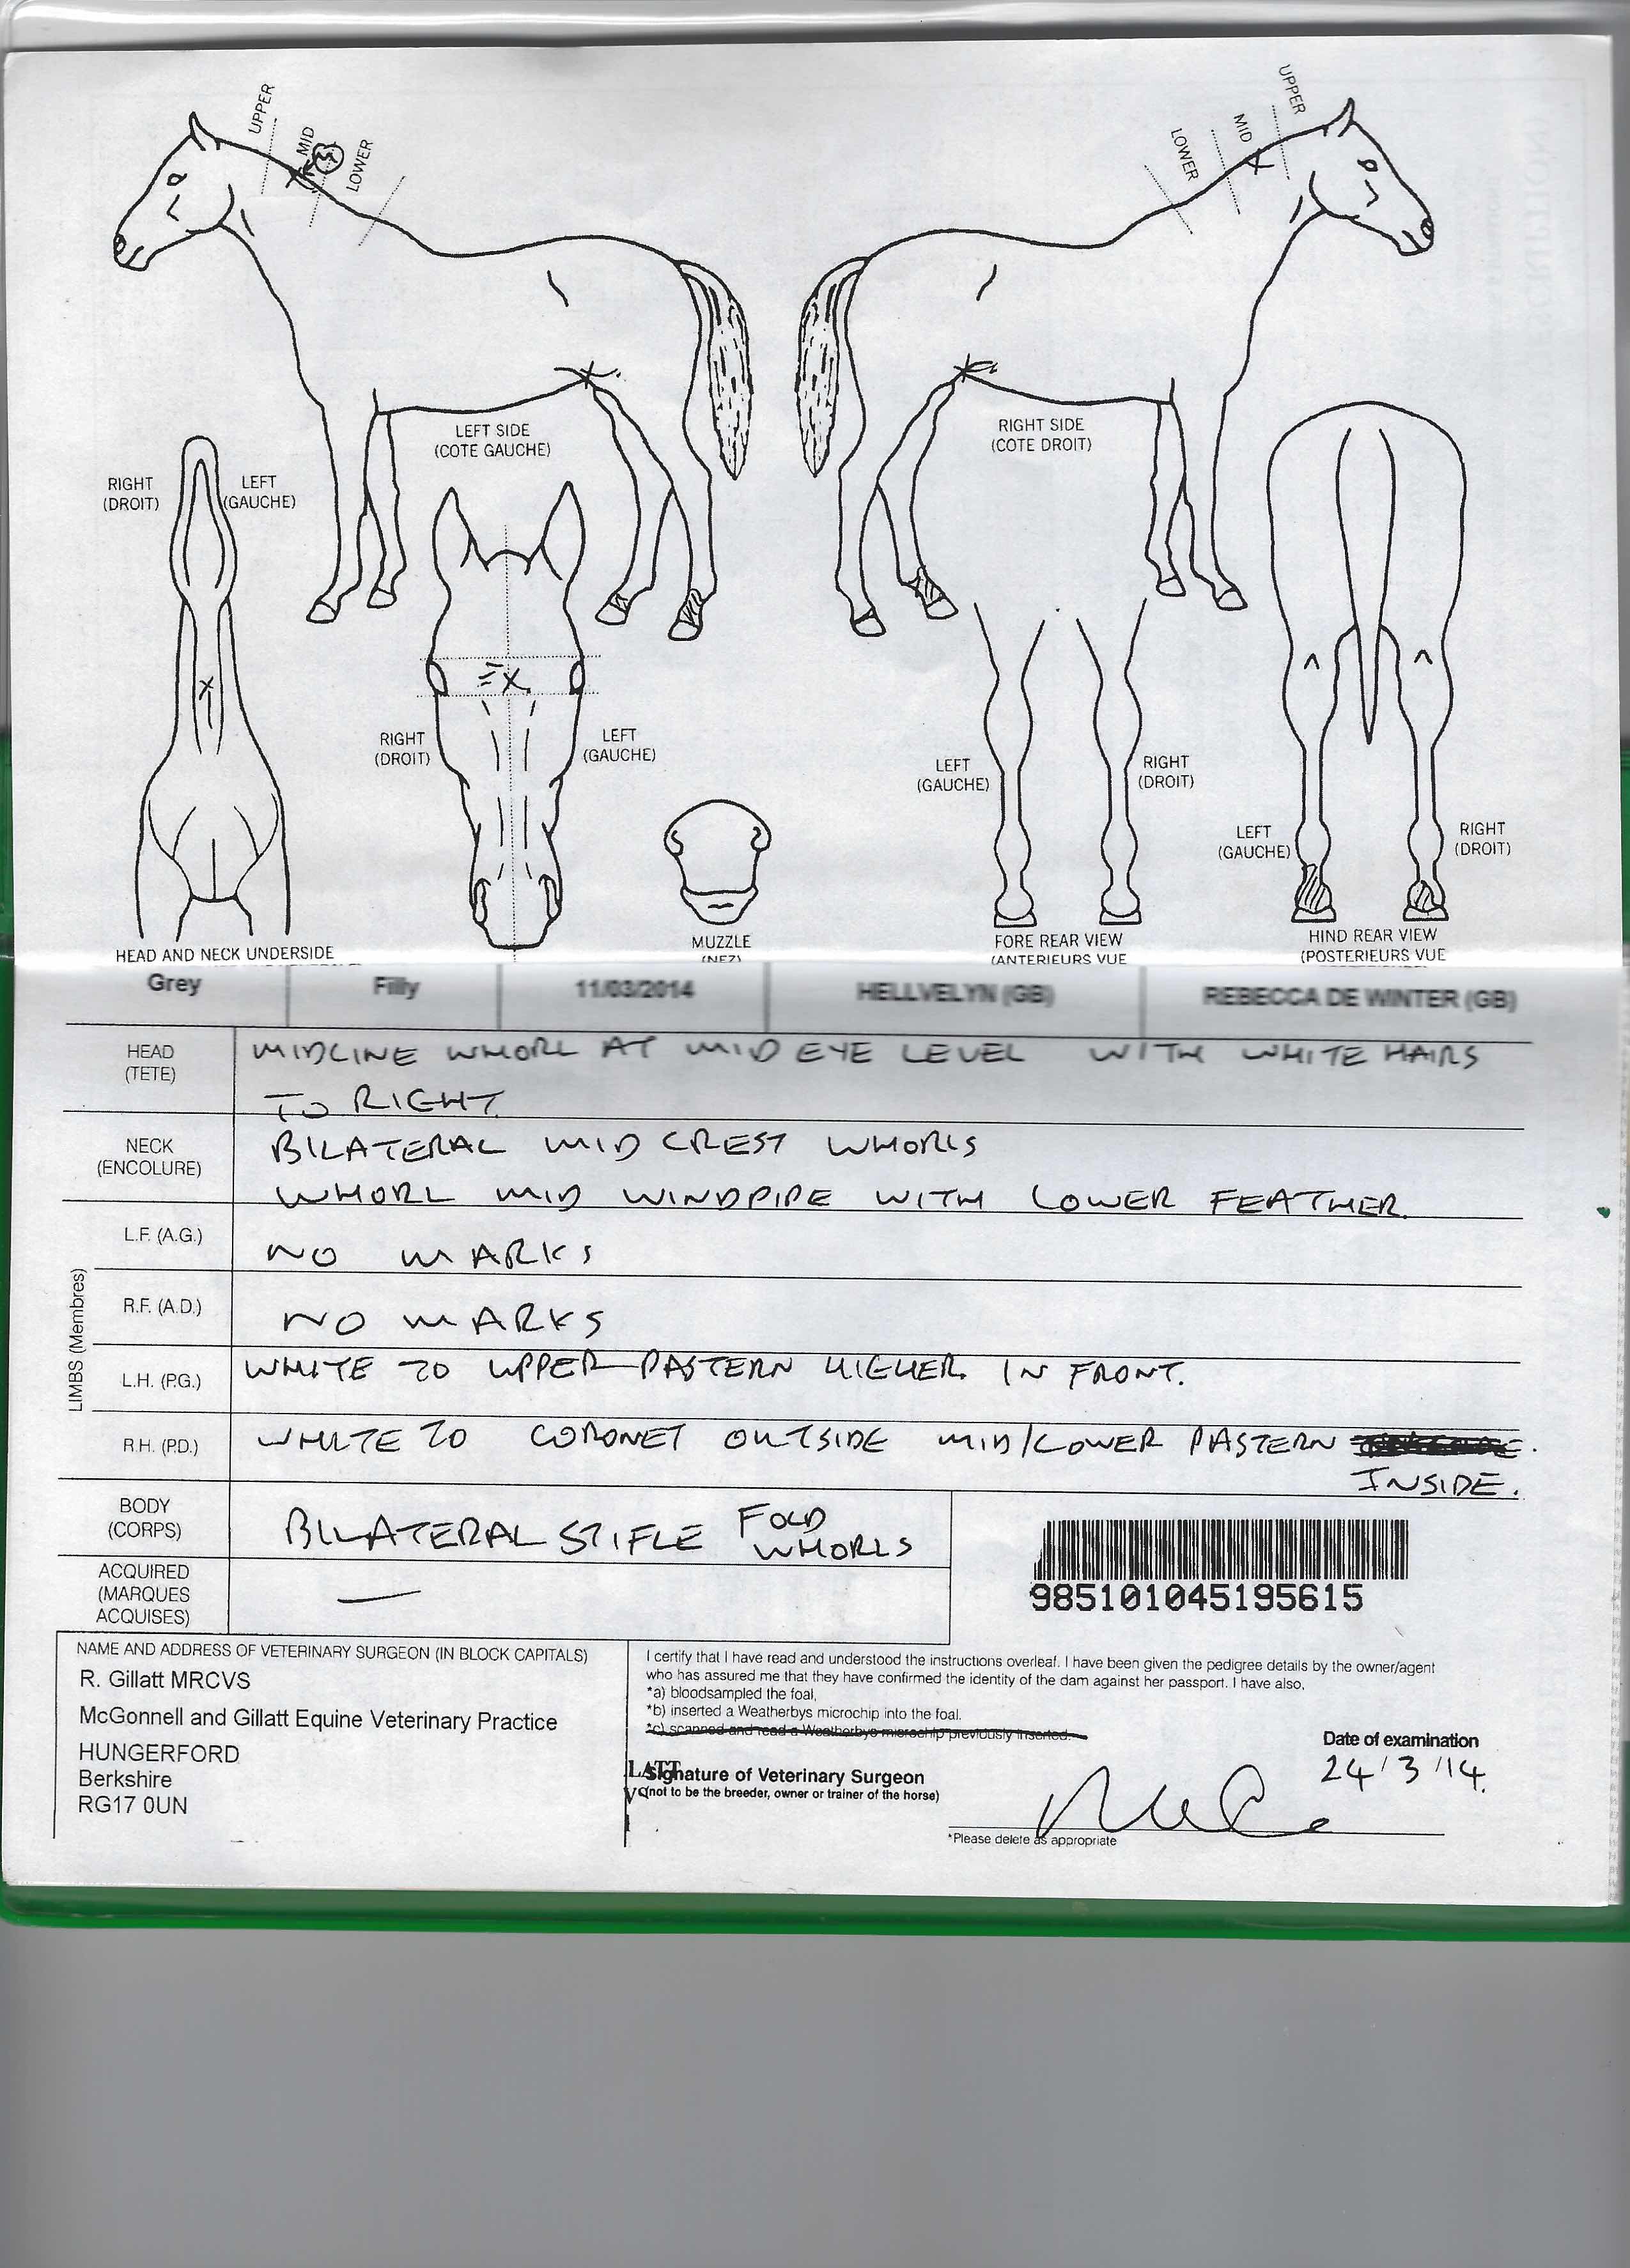 UPPER
MID
M
LOWER
UPPER
MID
LOWER
LEFT SIDE
(COTE GAUCHE)
RIGHT SIDE
(COTE DROIT)
RIGHT
(DROIT)
LEFT
(GAUCHE)
RIGHT
(DROIT)
LEFT
(GAUCHE)
LEFT
(GAUCHE)
RIGHT
(DROIT)
LEFT
(GAUCHE)
RIGHT
(DROIT)
HEAD AND NECK UNDERSIDE
MUZZLE
(NEZ)
FORE REAR VIEW
(ANTERIEURS VUE
HIND REAR VIEW
(POSTERIEURS VUE
Grey Filly 11/03/2014 HELLVELYN (GB) REBECCA DE WINTER (GB)
HEAD
(TETE)
MIDLINE WHORL AT MID EYE LEVEL WITH WHITE HAIRS
TO RIGHT
NECK
(ENCOLURE)
BILATERAL MID CREST WHORLS
WHORL MID WINDPIPE WITH LOWER FEATHER.
LIMBS (Membres)
L.F. (A.G.) NO MARKS
R.F. (A.D.) NO MARKS
L.H. (P.G.) WHITE TO UPPER PASTERN HIGHER IN FRONT.
R.H. (P.D.) WHITE TO CORONET OUTSIDE MID/LOWER PASTERN
INSIDE.
BODY
(CORPS)
BILATERAL STIFLE FOLD
WHORLS
ACQUIRED
(MARQUES
ACQUISES)
—
985101045195615
NAME AND ADDRESS OF VETERINARY SURGEON (IN BLOCK CAPITALS)
R. Gillatt MRCVS
McGonnell and Gillatt Equine Veterinary Practice
HUNGERFORD
Berkshire
RG17 0UN
I certify that I have read and understood the instructions overleaf. I have been given the pedigree details by the owner/agent
who has assured me that they have confirmed the identity of the dam against her passport. I have also,
*a) bloodsampled the foal,
*b) inserted a Weatherbys microchip into the foal.
*c) scanned and read a Weatherbys microchip previously inserted.
Date of examination
24/3/14.
LATT
Signature of Veterinary Surgeon
(not to be the breeder, owner or trainer of the horse)
*Please delete as appropriate